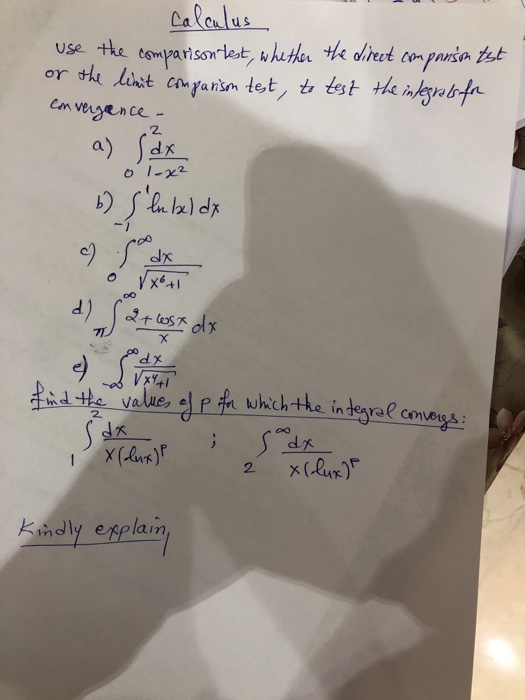 Calculus
use the comparison test, whether the direct comparison test
or the limit comparison test, to test the integrals for
convergence -
a) ∫₀² dx / 1-x²
b) ∫₋₁¹ ln |x| dx
c) ∫₀^∞ dx / √(x⁶+1)
d) ∫_π^∞ 2+cosx / x dx
e) ∫₋∞^∞ dx / √(x⁴+1)
find the values of p for which the integral convergs:
∫₁² dx / x(lnx)ᵖ ; ∫₂^∞ dx / x(lnx)ᵖ
Kindly explain,